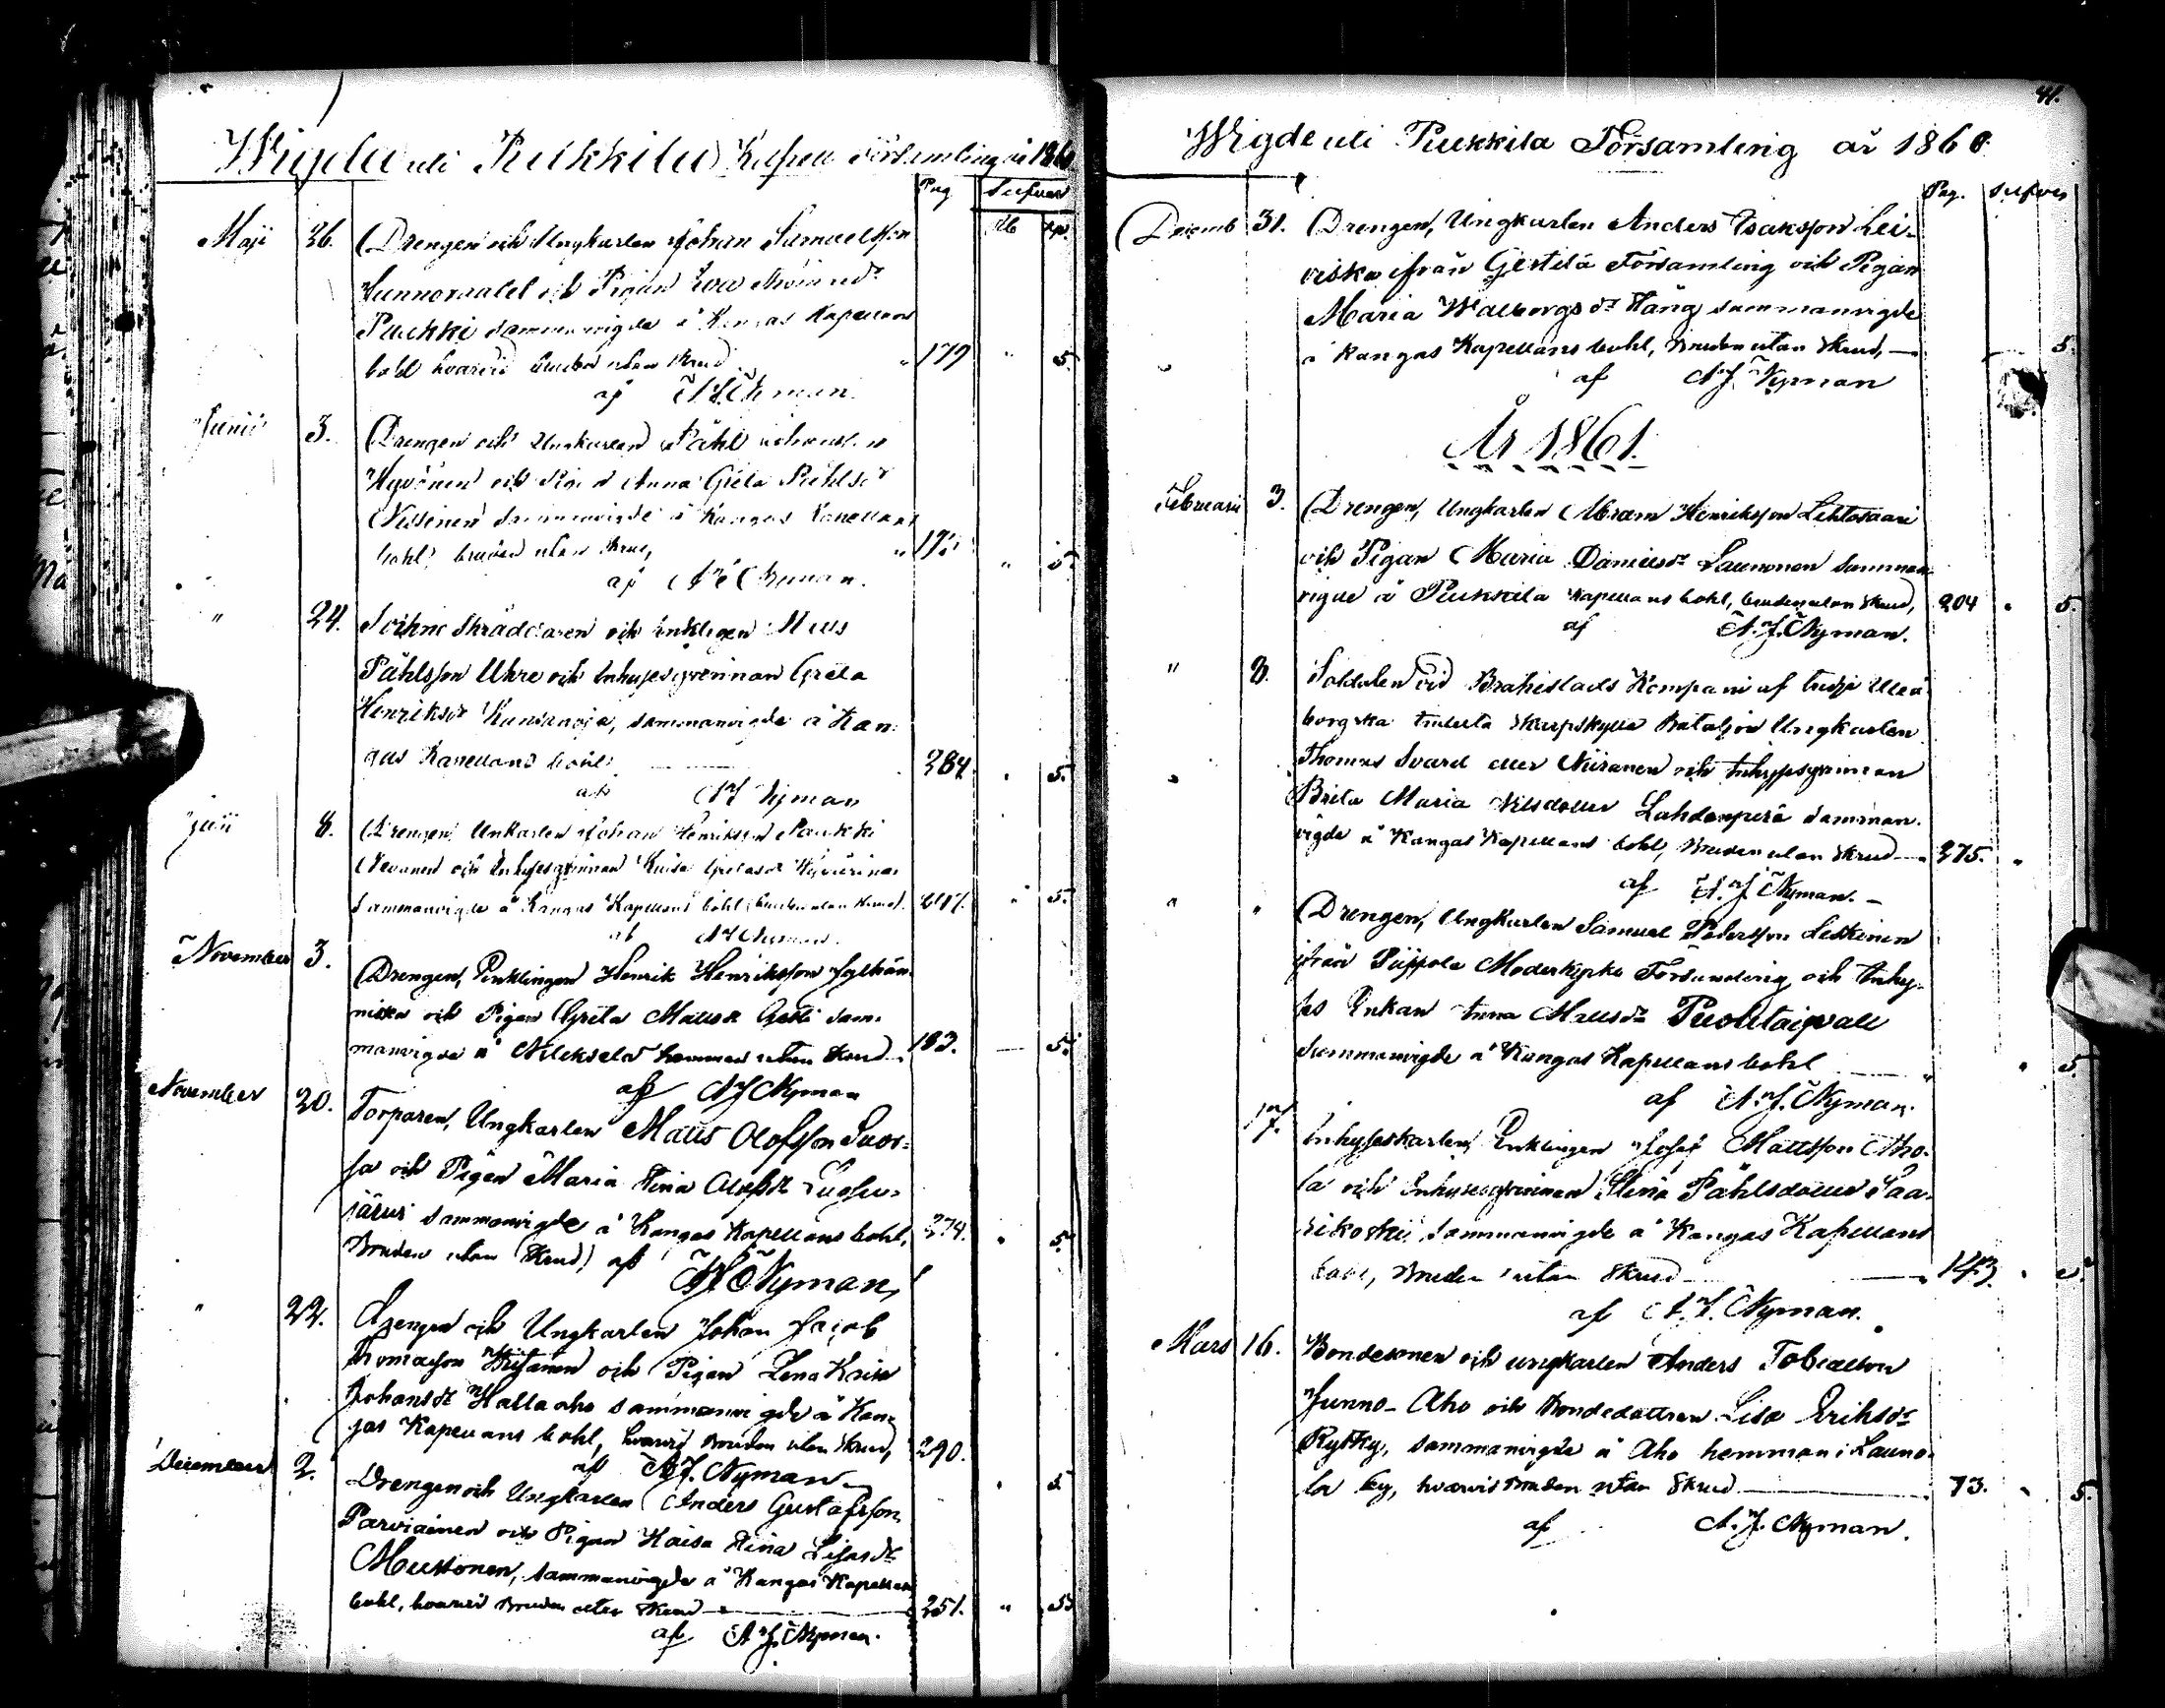 Wigde uti Pulkkila Kapell Församling år 1860
Pag Silfver
Rb kp.
Maji 26. Drengen och Ungkarlen Johan Samuelsson
och Pigan Eva
Puukki sammanvigde å Kangas Kapellans
bohl hvarvid bruden utan skrud " 179 " 5.
af A J Nyman
Junii 3. Drengen och Ungkarlen Påhl
Hyvönen och Pigan Anna Greta Påhlsdr
Nissinen sammanvigde å Kangas Kapellans
bohl bruden utan skrud, " 5.
af Nyman.
" 24. Sockne Skräddaren och Enklingen Matts
Påhlsson Uhre och Inhysesqvinnan Greta
Henriksdr Kansanoja, sammanvigde å Kan-
gas Kapellans bohl 284. " 5.
af A J Nyman
Julii 8. Drengen Unkarlen Johan Henriksson Paukki
och Inhysesqvinnan Kaisa
sammanvigde å Kangas Kapellans bohl bruden utan skrud. " 5.
af A J Nyman.
November 3. Drengen, Enklingen Henrik Henriksson Jylhän-
niska och Pigan Greta Mattsdr sam-
manvigde å hemman utan skrud 183. — 5.
af A J Nyman
November 20. Torparen, Ungkarlen Matts Olofsson Suor-
sa och Pigan Maria Stina Olofsdr
järvi sammanvigde å Kangas Kapellans bohl, 274. " 5.
Bruden utan Skrud, af
A J Nyman,
" 22. Drengen och Ungkarlen Johan Jacob
Thomasson och Pigan Lena Kaisa
Johansdr Hallaaho sammanvigde å Kan-
gas Kapellans bohl, hvarvid Bruden utan skrud, 290.
af A J. Nyman " 5
December 2. Drengen och Ungkarlen Anders Gustafsson
Parviainen och Pigan Kaisa Stina Lisasdr
Mustonen, sammanvigde å Kangas Kapellans
bohl, hvarvid Bruden utan skrud 251. " 5
af A J. Nyman.
41.
Wigde uti Pulkkila Församling år 1860
Pag. Silfver
Decemb 31. Drengen, Ungkarlen Anders Isaksson Lei-
viska ifrån Gestilä Församling och Pigan
Maria Walborgsdr Häng sammanvigde
å Kangas Kapellans bohl, Bruden utan Skrud, — 5.
af A J Nyman
År 1861.
Februarii 3. Drengen, Ungkarlen Abram Henriksson Lehtosaari
och Pigan Maria Danielsdr Launonen samman-
vigde å Pulkkila Kapellans bohl, bruden utan skrud, 204 " 5.
af A. J. Nyman.
" 3. Soldaten vid Brahestads Kompani af tredje Uleå-
borgska indelta Skarpskytte Bataljon Ungkarlen
Thomas Svärd eller Niiranen och Inhysesqvinnan
Brita Maria Nilsdotter Lahdenperä samman-
vigde å Kangas Kapellans bohl, Bruden utan skrud — 275. "
af A. J. Nyman. —
" " Drengen, Ungkarlen Samuel Pedersson Leskinen
ifrån Piippola Moderkyrko Församling och Inhy-
ses Enkan Anna Mattsdr Puolitaipale
sammanvigde å Kangas Kapellans bohl " 5.
af A. J. Nyman.
17. Inhyseskarlen, Enklingen Josef Mattsson Aho-
la och Inhysesqvinnan Stina Påhlsdotter Saa-
rikoski, sammanvigde å Kangas Kapellans
bohl, Bruden utan Skrud 143. "
af A. J. Nyman.
Mars 16. Bondesonen och ungkarlen Anders Tobiasson
Junno-Aho och Bondedottren Lisa Eriksdr
Rytky, sammanvigde å Aho hemman i Launo-
la by, hvarvid Bruden utan Skrud 73. " 5.
af A. J. Nyman.